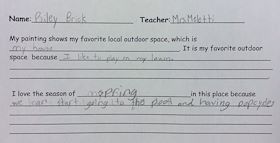 Name: Riley Brick Teacher: Mrs Meletti
My painting shows my favorite local outdoor space, which is
my house. It is my favorite outdoor
space because I like to play in my lawn.
I love the season of spring in this place because
we can start going to the pool and having popsycles